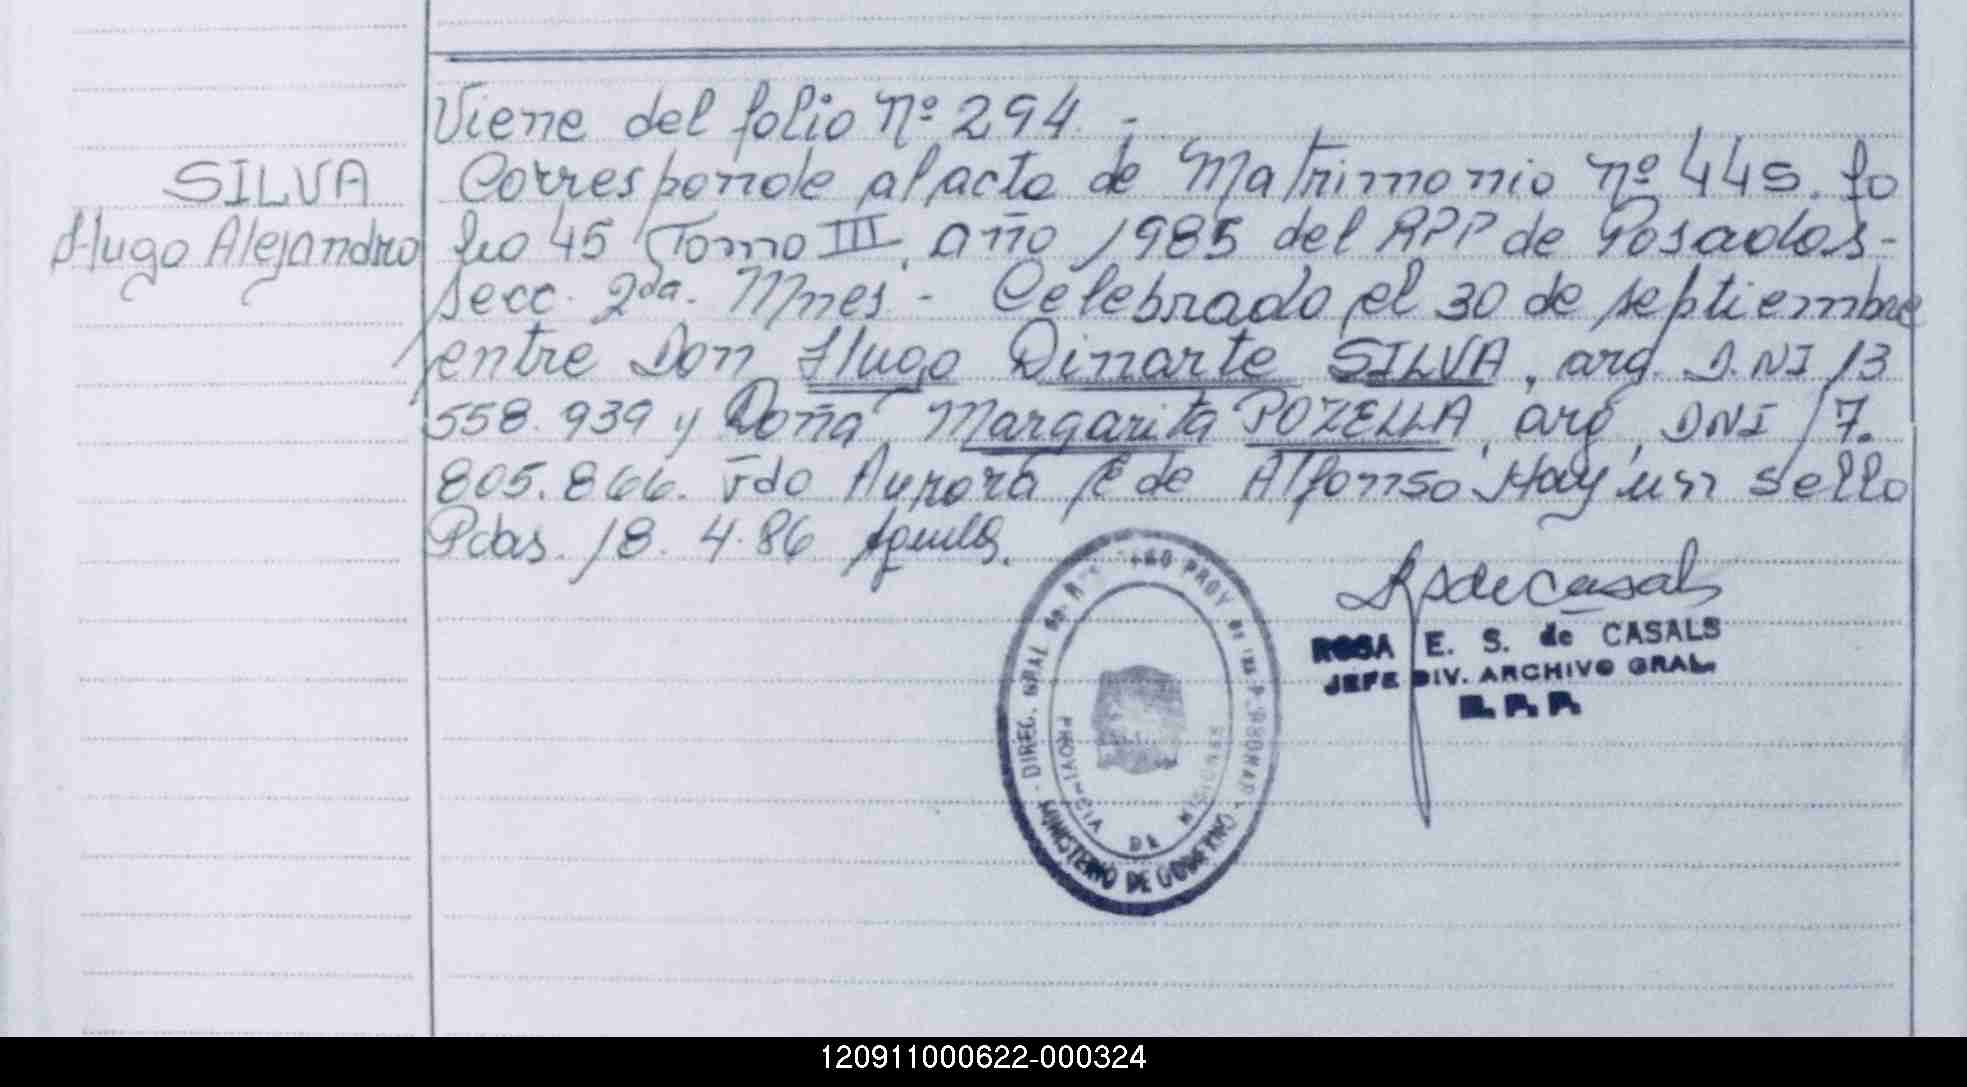 Viene del folio nº 294. -
SILVA
Hugo Alejandro
Corresponde al acta de Matrimonio nº 445. fo
lio 45 Tomo III, año 1985 del RPP de Posadas-
Secc. 2da. Mnes. - Celebrado el 30 de septiembre
entre Don Hugo Dinarte SILVA, arg. D.NI 13
558.939 y Doña Margarita POZELLA, arg, DNI 17.
805.866. Fdo Aurora F de Alfonso Hay un sello
Pdas. 18. 4. 86
ROSA E. S. de CASALS
JEFE DIV. ARCHIVO GRAL.
R. P. P.
MINISTERIO DE GOBIERNO
PROVINCIA DE MISIONES
120911000622-000324